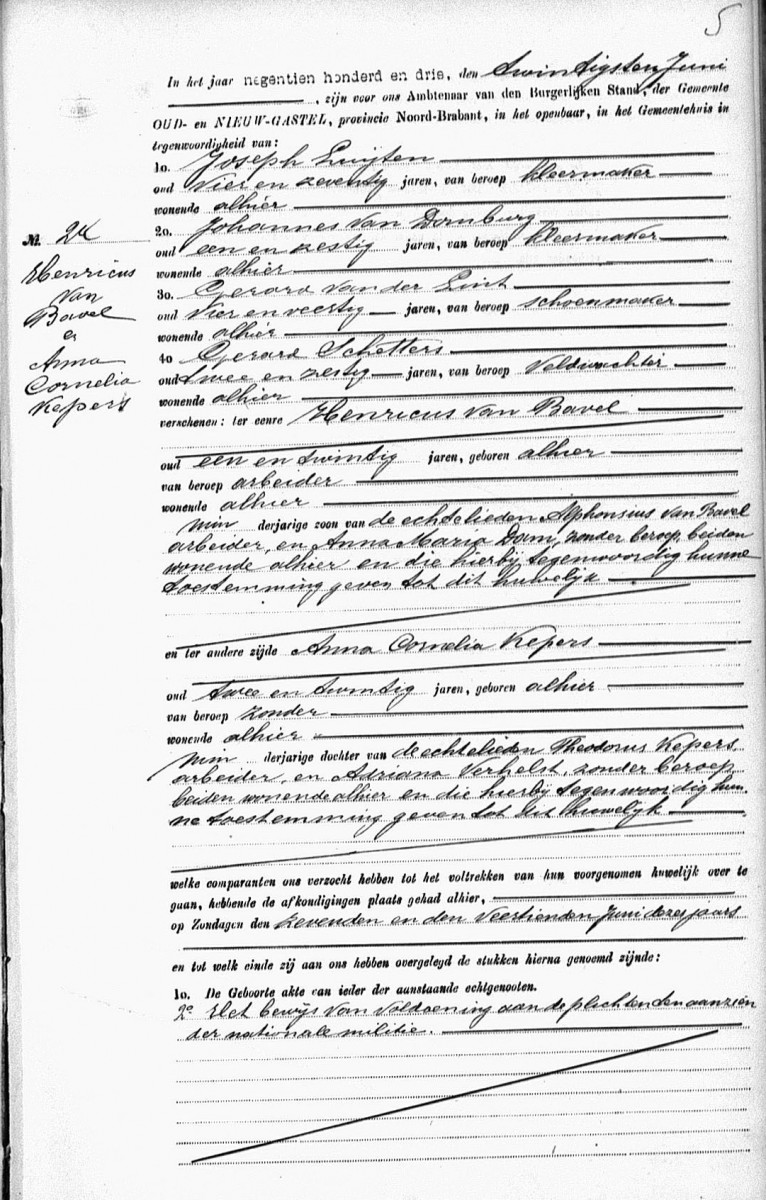 5
In het jaar negentien honderd en drie, den twintigsten Juni
, zijn voor ons Ambtenaar van den Burgerlijken Stand, der Gemeente
OUD- en NIEUW-GASTEL, provincie Noord-Brabant, in het openbaar, in het Gemeentehuis in
tegenwoordigheid van:
1o. Joseph Luijten
oud vier en zeventig jaren, van beroep kleermaker
wonende alhier
2o. Johannes van Dornburg
oud een en zestig jaren, van beroep kleermaker
wonende alhier
3o. Gerard van der Lint
oud vier en veertig jaren, van beroep schoenmaker
wonende alhier
4o Gerard Schetters
oud twee en zestig jaren, van beroep veldwachter
wonende alhier
verschenen: ter eenre Henricus van Bavel
№. 24
Henricus
van
Bavel
&
Anna
Cornelia
Kepers
oud een en twintig jaren, geboren alhier
van beroep arbeider
wonende alhier
min derjarige zoon van de echtelieden Alphonsius van Bavel
arbeider, en Anna Maria Dam, zonder beroep, beiden
wonende alhier en die hierbij tegenwoordig hunne
toestemming geven tot dit huwelijk
en ter andere zijde Anna Cornelia Kepers
oud twee en twintig jaren, geboren alhier
van beroep zonder
wonende alhier
min derjarige dochter van de echtelieden Theodorus Kepers
arbeider, en Adriana Verhelst, zonder beroep
beiden wonende alhier en die hierbij tegenwoordig hun-
ne toestemming geven tot dit huwelijk
welke comparanten ons verzocht hebben tot het voltrekken van hun voorgenomen huwelijk over te
gaan, hebbende de afkondigingen plaats gehad alhier,
op Zondagen den zevenden en den veertienden Juni dezes jaars
en tot welk einde zij aan ons hebben overgelegd de stukken hierna genoemd zijnde:
1o. De Geboorte akte van ieder der aanstaande echtgenooten.
2o Het bewijs van voldoening aan de plichten ten aanzien
der nationale militie.